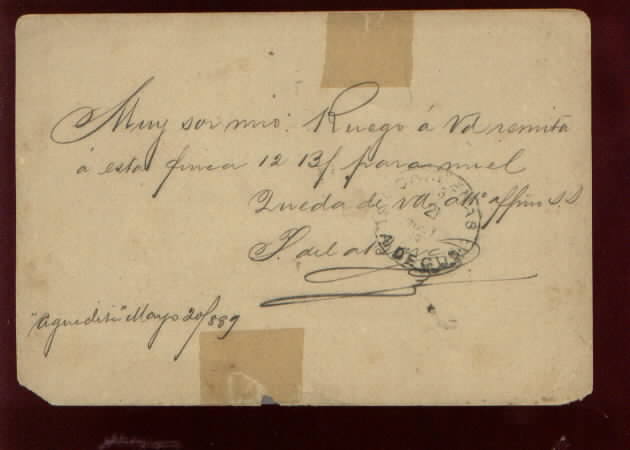 Muy sor mio: Ruego á Vd remita
á esta finca 12 B/ para miel
Queda de Vd att° affmo S.S.
P. del
"Aguedita" Mayo 20/889
DE CUBA